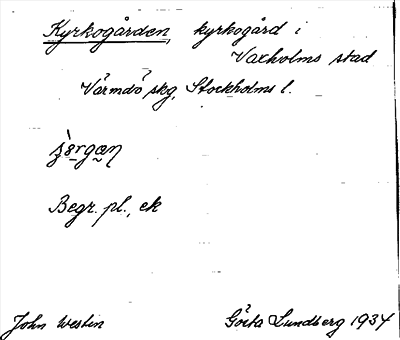 Kyrkogården, kyrkogård i
Vaxholms stad
Värmdö skg, Stockholms l.
Begr. pl., ek
John Westin
Gösta Lundberg 1934